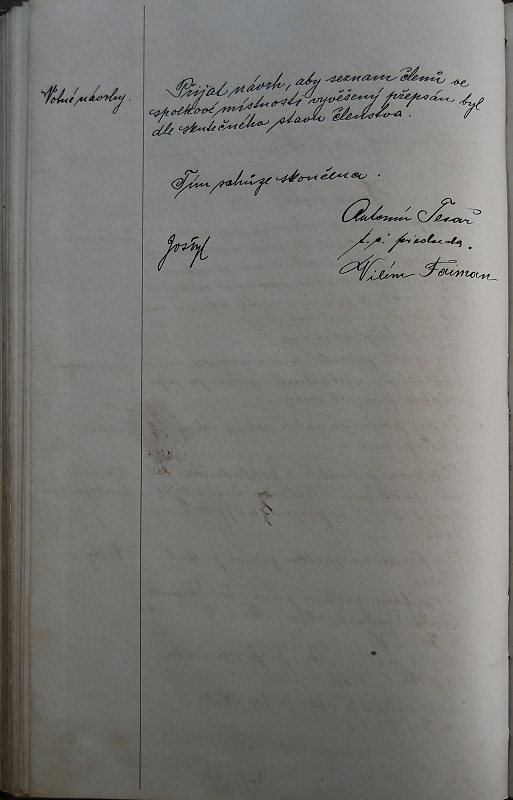 Volné návrhy.
Přijat návrh, aby seznam členů ve
spolkové místnosti vyvěšený přepsán byl
dle skutečného stavu členstva.
Tím schůze skončena.
Antonín Tesař
t. č. předseda.
Vilém Faiman